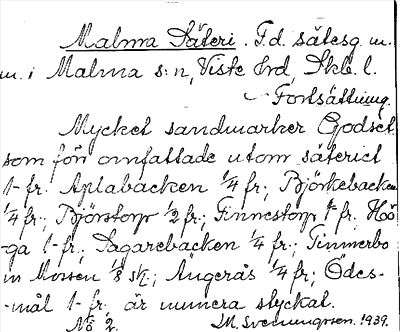 Malma Säteri. F.d. sätesg. m.
m. i Malma s:n, Viste hrd, Skb. l.
Fortsättning.
Mycket sandmarker Godset
som förr omfattade utom säteriet
1- fr. Aplabacken 1/4 fr; Björkebacken
1/4 fr; Björstorp 1/2 fr; Finnestorp 1- fr. Hö
ga 1- fr; Sagarebacken 1/4 fr; Timmerbo
in Mossen 1/8 sk; Ängerås 1/4 fr; Ödes-
-mål 1- fr, är numera styckat.
No 2. M. Svenungsson. 1939.